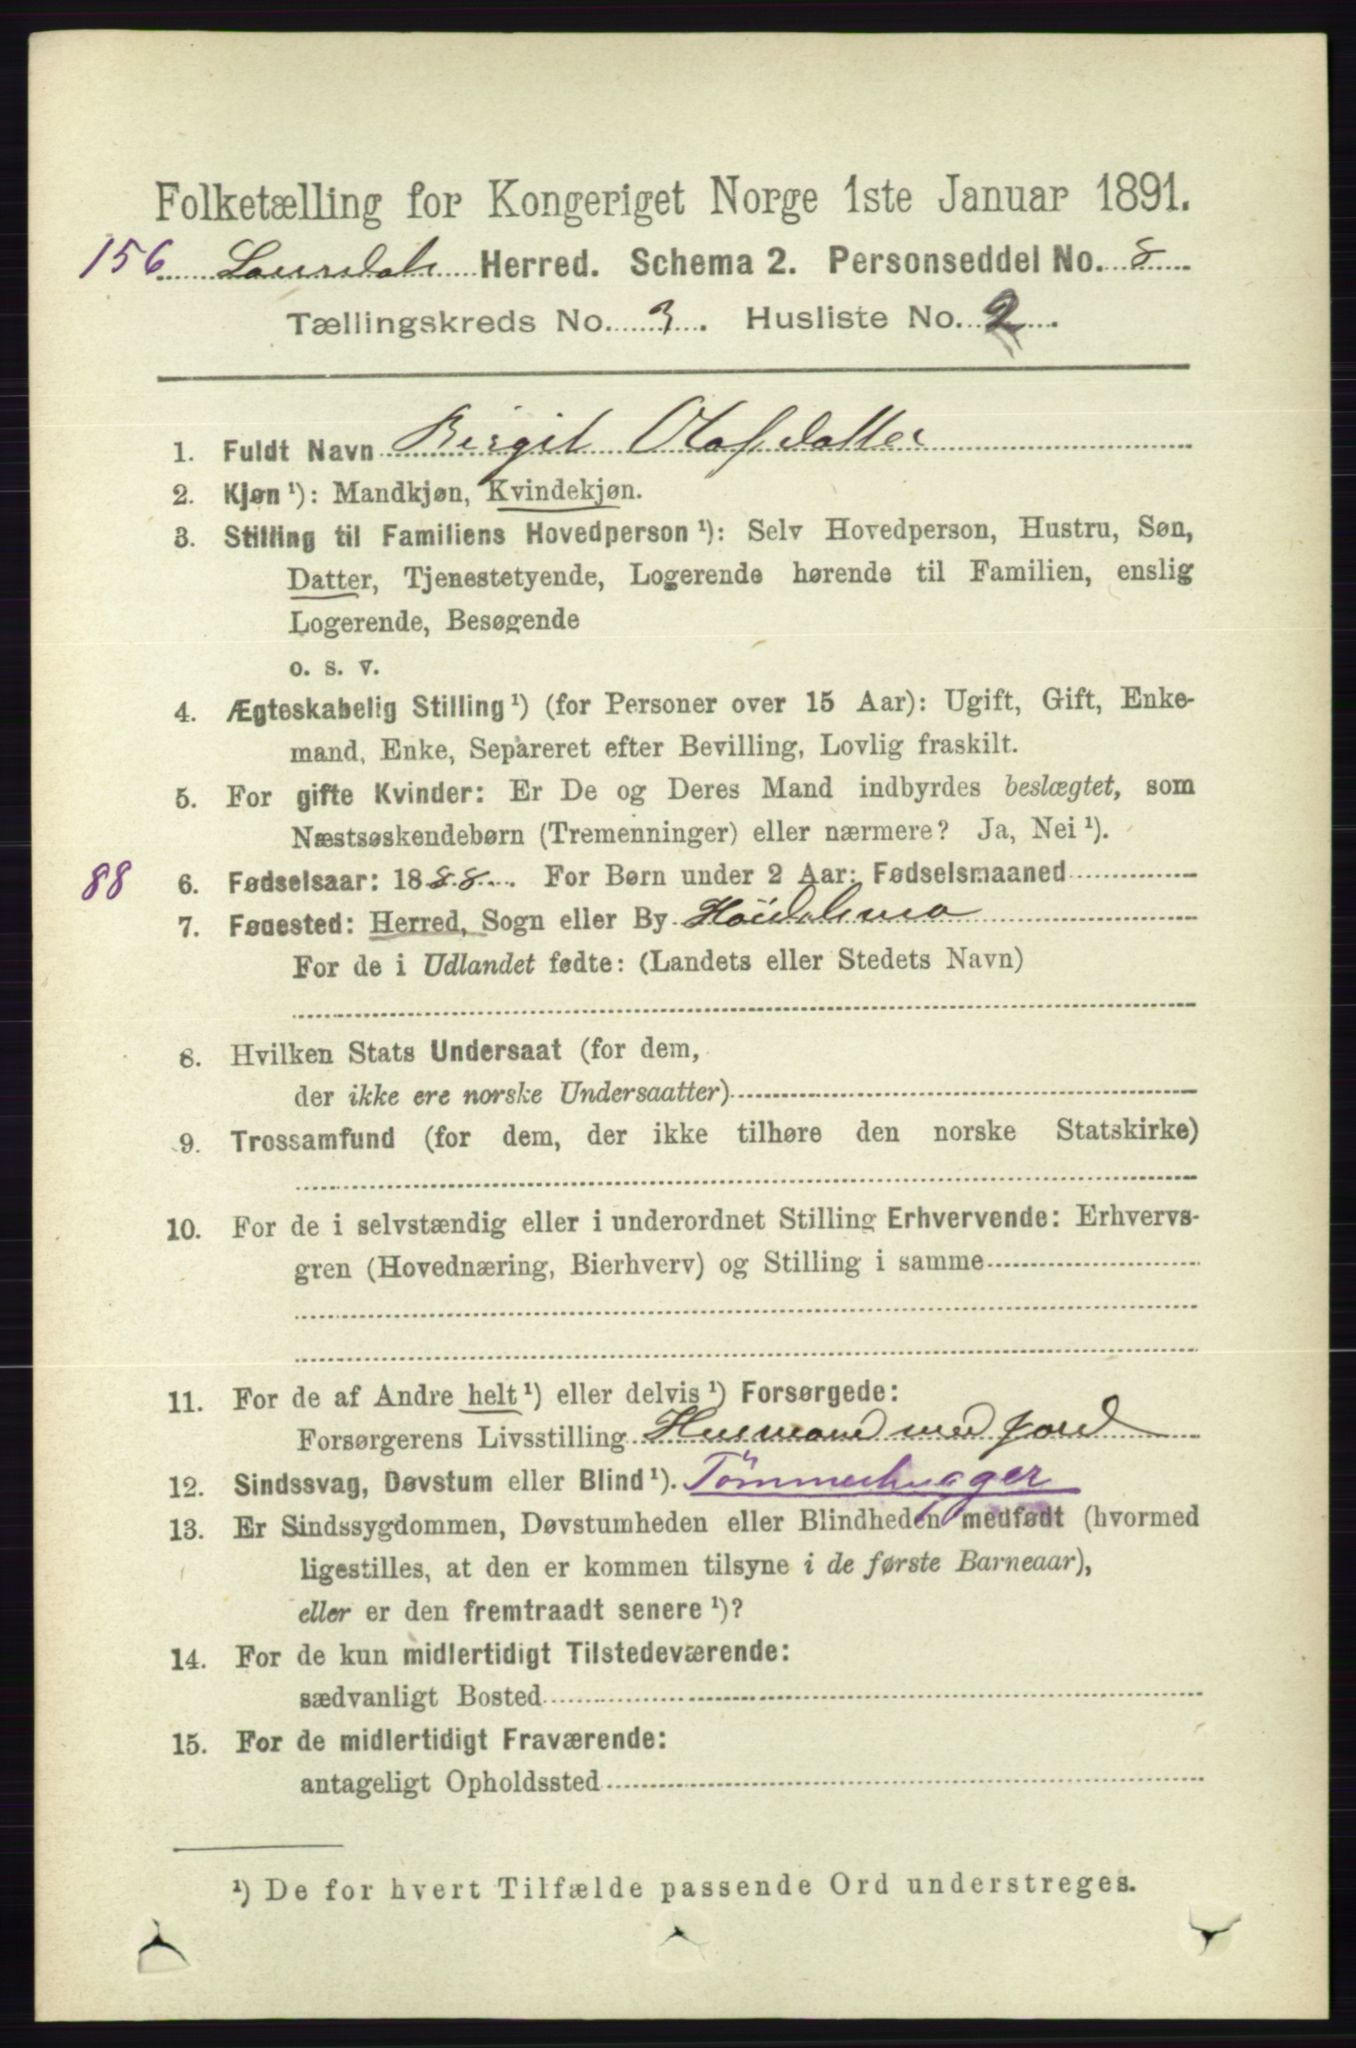 Folketælling for Kongeriget Norge 1ste Januar 1891.
156 Laurdal Herred. Schema 2. Personseddel No. 8
Tællingskreds No. 3. Husliste No. 2.
1. Fuldt Navn Birgit Olafdatter
2. Kjøn ¹): Mandkjøn, Kvindekjøn.
3. Stilling til Familiens Hovedperson ¹): Selv Hovedperson, Hustru, Søn,
Datter, Tjenestetyende, Logerende hørende til Familien, enslig
Logerende, Besøgende
o. s. v.
4. Ægteskabelig Stilling ¹) (for Personer over 15 Aar): Ugift, Gift, Enke-
mand, Enke, Separeret efter Bevilling, Lovlig fraskilt.
5. For gifte Kvinder: Er De og Deres Mand indbyrdes beslægtet, som
Næstsøskendebørn (Tremenninger) eller nærmere? Ja, Nei ¹).
88 6. Fødselsaar: 1888. For Børn under 2 Aar: Fødselsmaaned
7. Fødested: Herred, Sogn eller By Höidalsmo
For de i Udlandet fødte: (Landets eller Stedets Navn)
8. Hvilken Stats Undersaat (for dem,
der ikke ere norske Undersaatter)
9. Trossamfund (for dem, der ikke tilhøre den norske Statskirke)
10. For de i selvstændig eller i underordnet Stilling Erhvervende: Erhvervs-
gren (Hovednæring, Bierhverv) og Stilling i samme
11. For de af Andre helt ¹) eller delvis ¹) Forsørgede:
Forsørgerens Livsstilling Husmand med Jord
12. Sindssvag, Døvstum eller Blind ¹). Tömmerhugger
13. Er Sindssygdommen, Døvstumheden eller Blindheden medfødt (hvormed
ligestilles, at den er kommen tilsyne i de første Barneaar),
eller er den fremtraadt senere ¹)?
14. For de kun midlertidigt Tilstedeværende:
sædvanligt Bosted
15. For de midlertidigt Fraværende:
antageligt Opholdssted
¹) De for hvert Tilfælde passende Ord understreges.